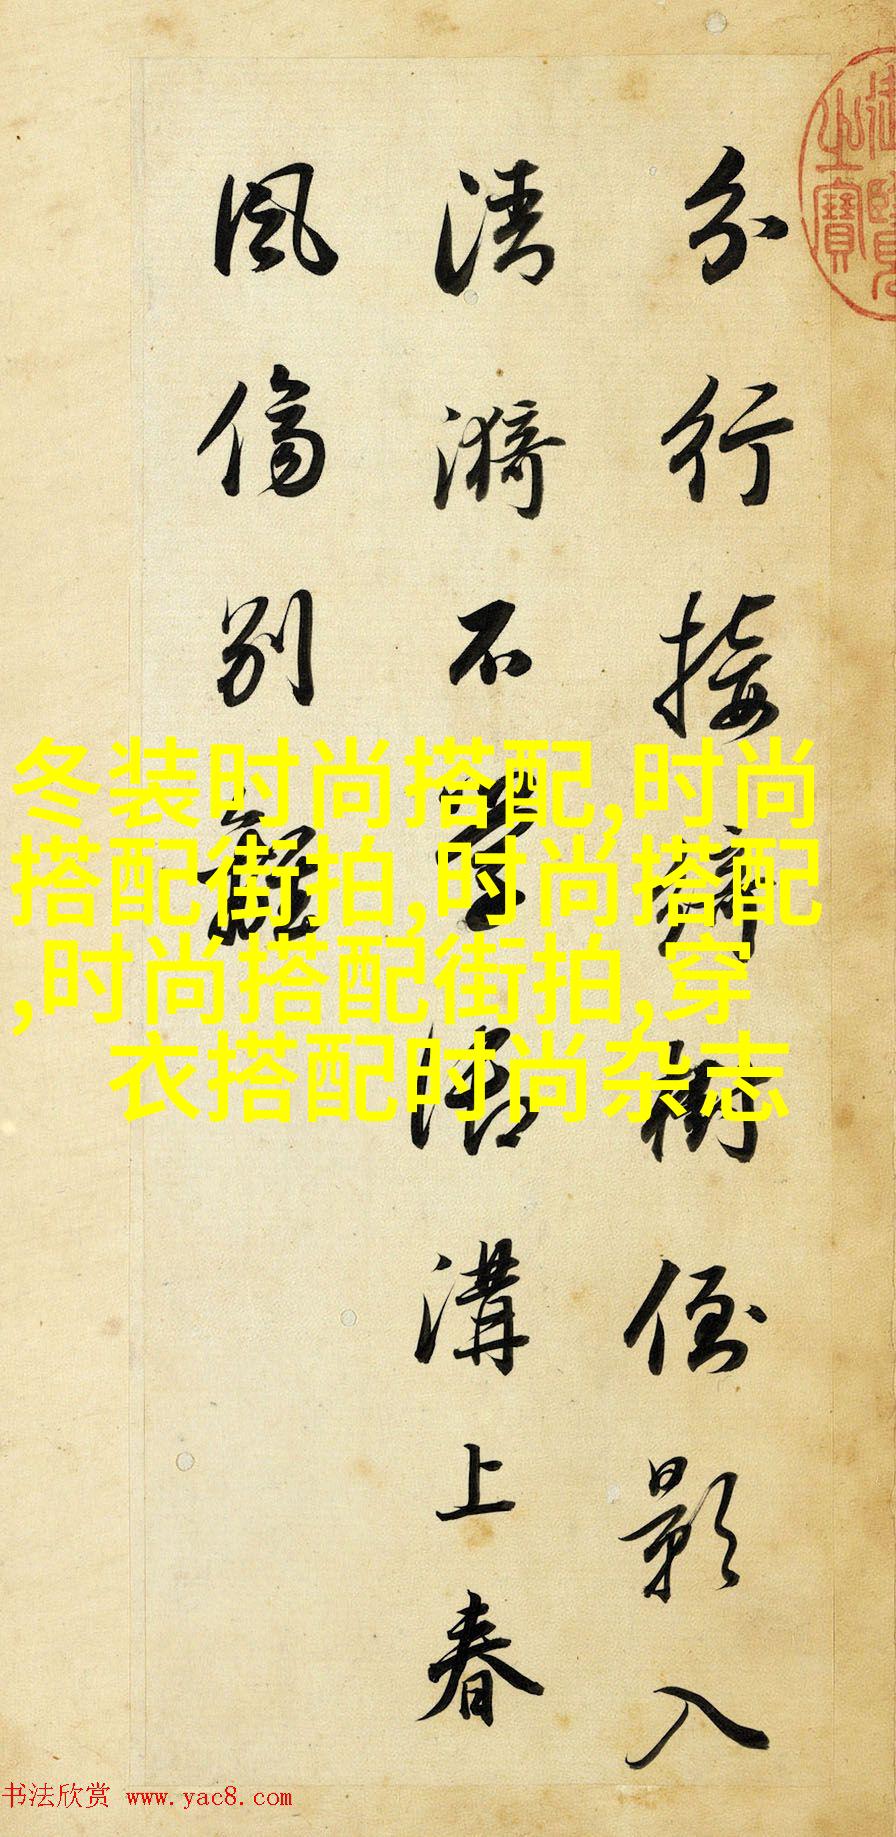 分行接綺樹倒影入
清漪不學御溝上春
風傷別離
御覽之寶
冬装时尚搭配,时尚
搭配街拍,时尚搭配
,时尚搭配街拍,穿
衣搭配时尚杂志
书法欣赏 www.yac8.com